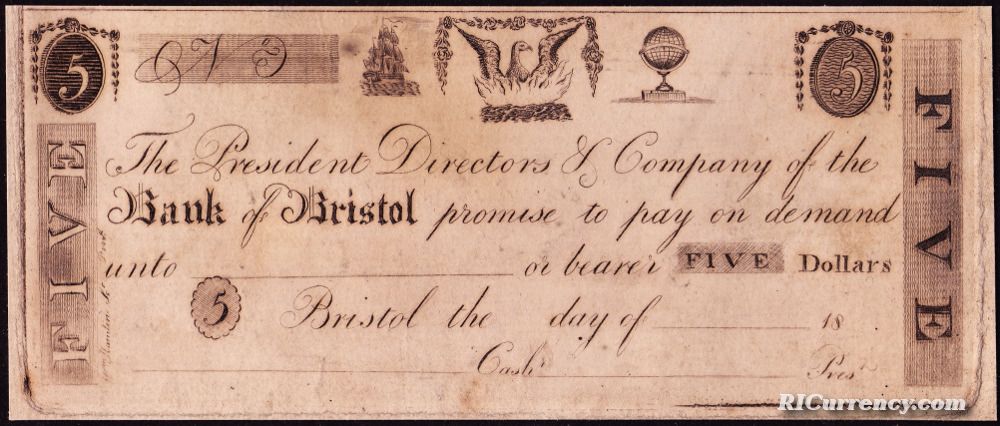 5 No 5
FIVE
The President Directors & Company of the
Bank of Bristol promise to pay on demand
unto or bearer FIVE Dollars
5 Bristol the day of 18
Cashr Prest
FIVE
RICurrency.com